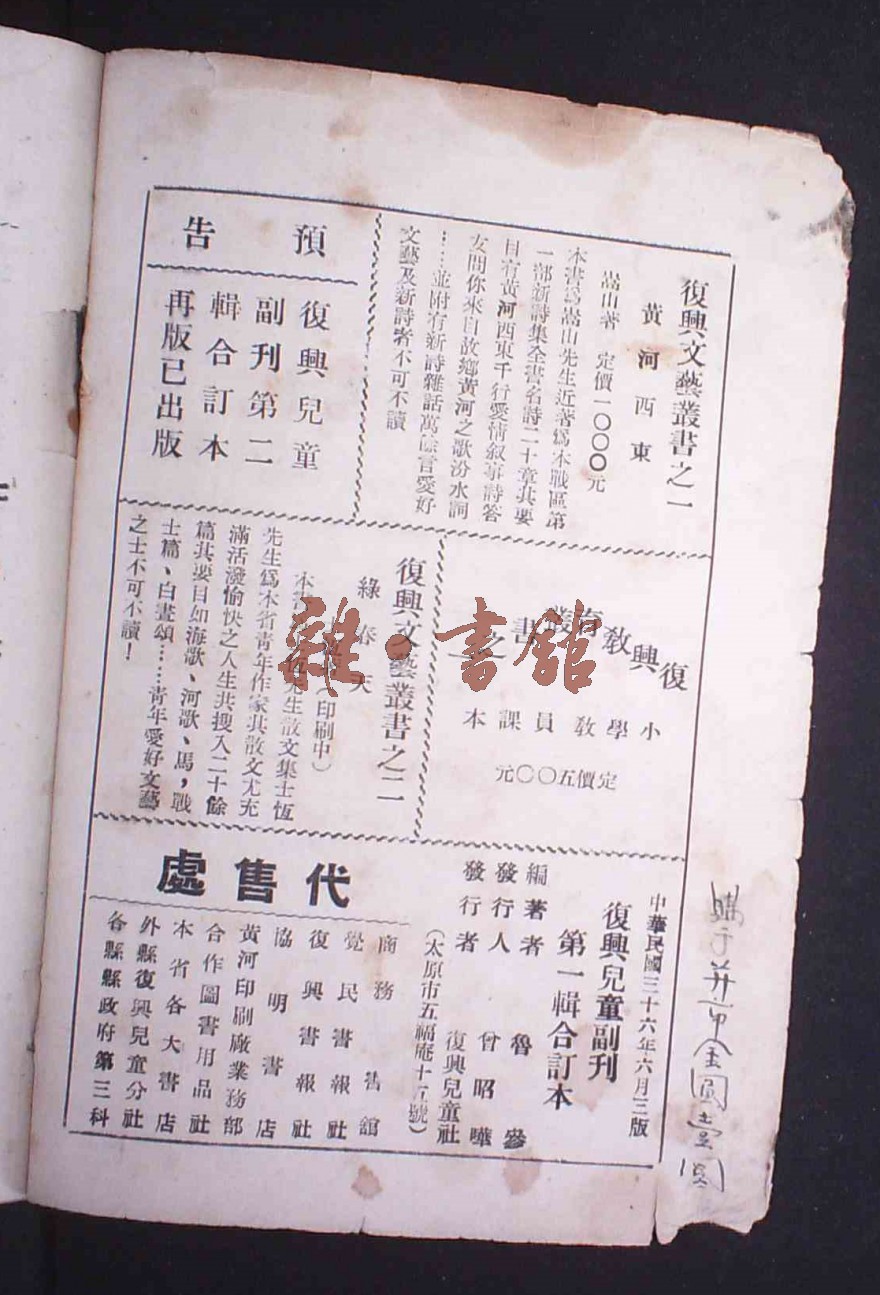 復興文藝叢書之一
黃河西東
嵩山著　定價一〇〇〇元
本書爲嵩山先生近著爲本戰區第
一部新詩集全書名詩二十章其要
目有黃河西東千行愛情叙事詩答
女問你來自故鄉黃河之歌汾水詞
……並附有新詩雜話萬餘言愛好
文藝及新詩者不可不讀
預告
復興兒童
副刊第二
輯合訂本
再版已出版
復興教育叢書之一
小學教員課本
定價五〇〇元
復興文藝叢書之二
綠春天
（印刷中）
本書　先生散文集士恆
先生爲本省青年作家其散文尤充
滿活潑愉快之人生共搜入二十餘
篇其要目如海歌、河歌、馬，戰
士篇、白晝頌……青年愛好文藝
之士不可不讀！
中華民國三十六年六月三版
復興兒童副刊
第一輯合訂本
編著者　魯參
發行人　曾昭曄
發行者　復興兒童社
（太原市五福庵十五號）
代售處
商務書舘
覺民書報社
復興書報社
協明書店
黃河印刷廠業務部
合作圖書用品社
本省各大書店
外縣復興兒童分社
各縣縣政府第三科
購于并市金圓壹圓
雜·書館